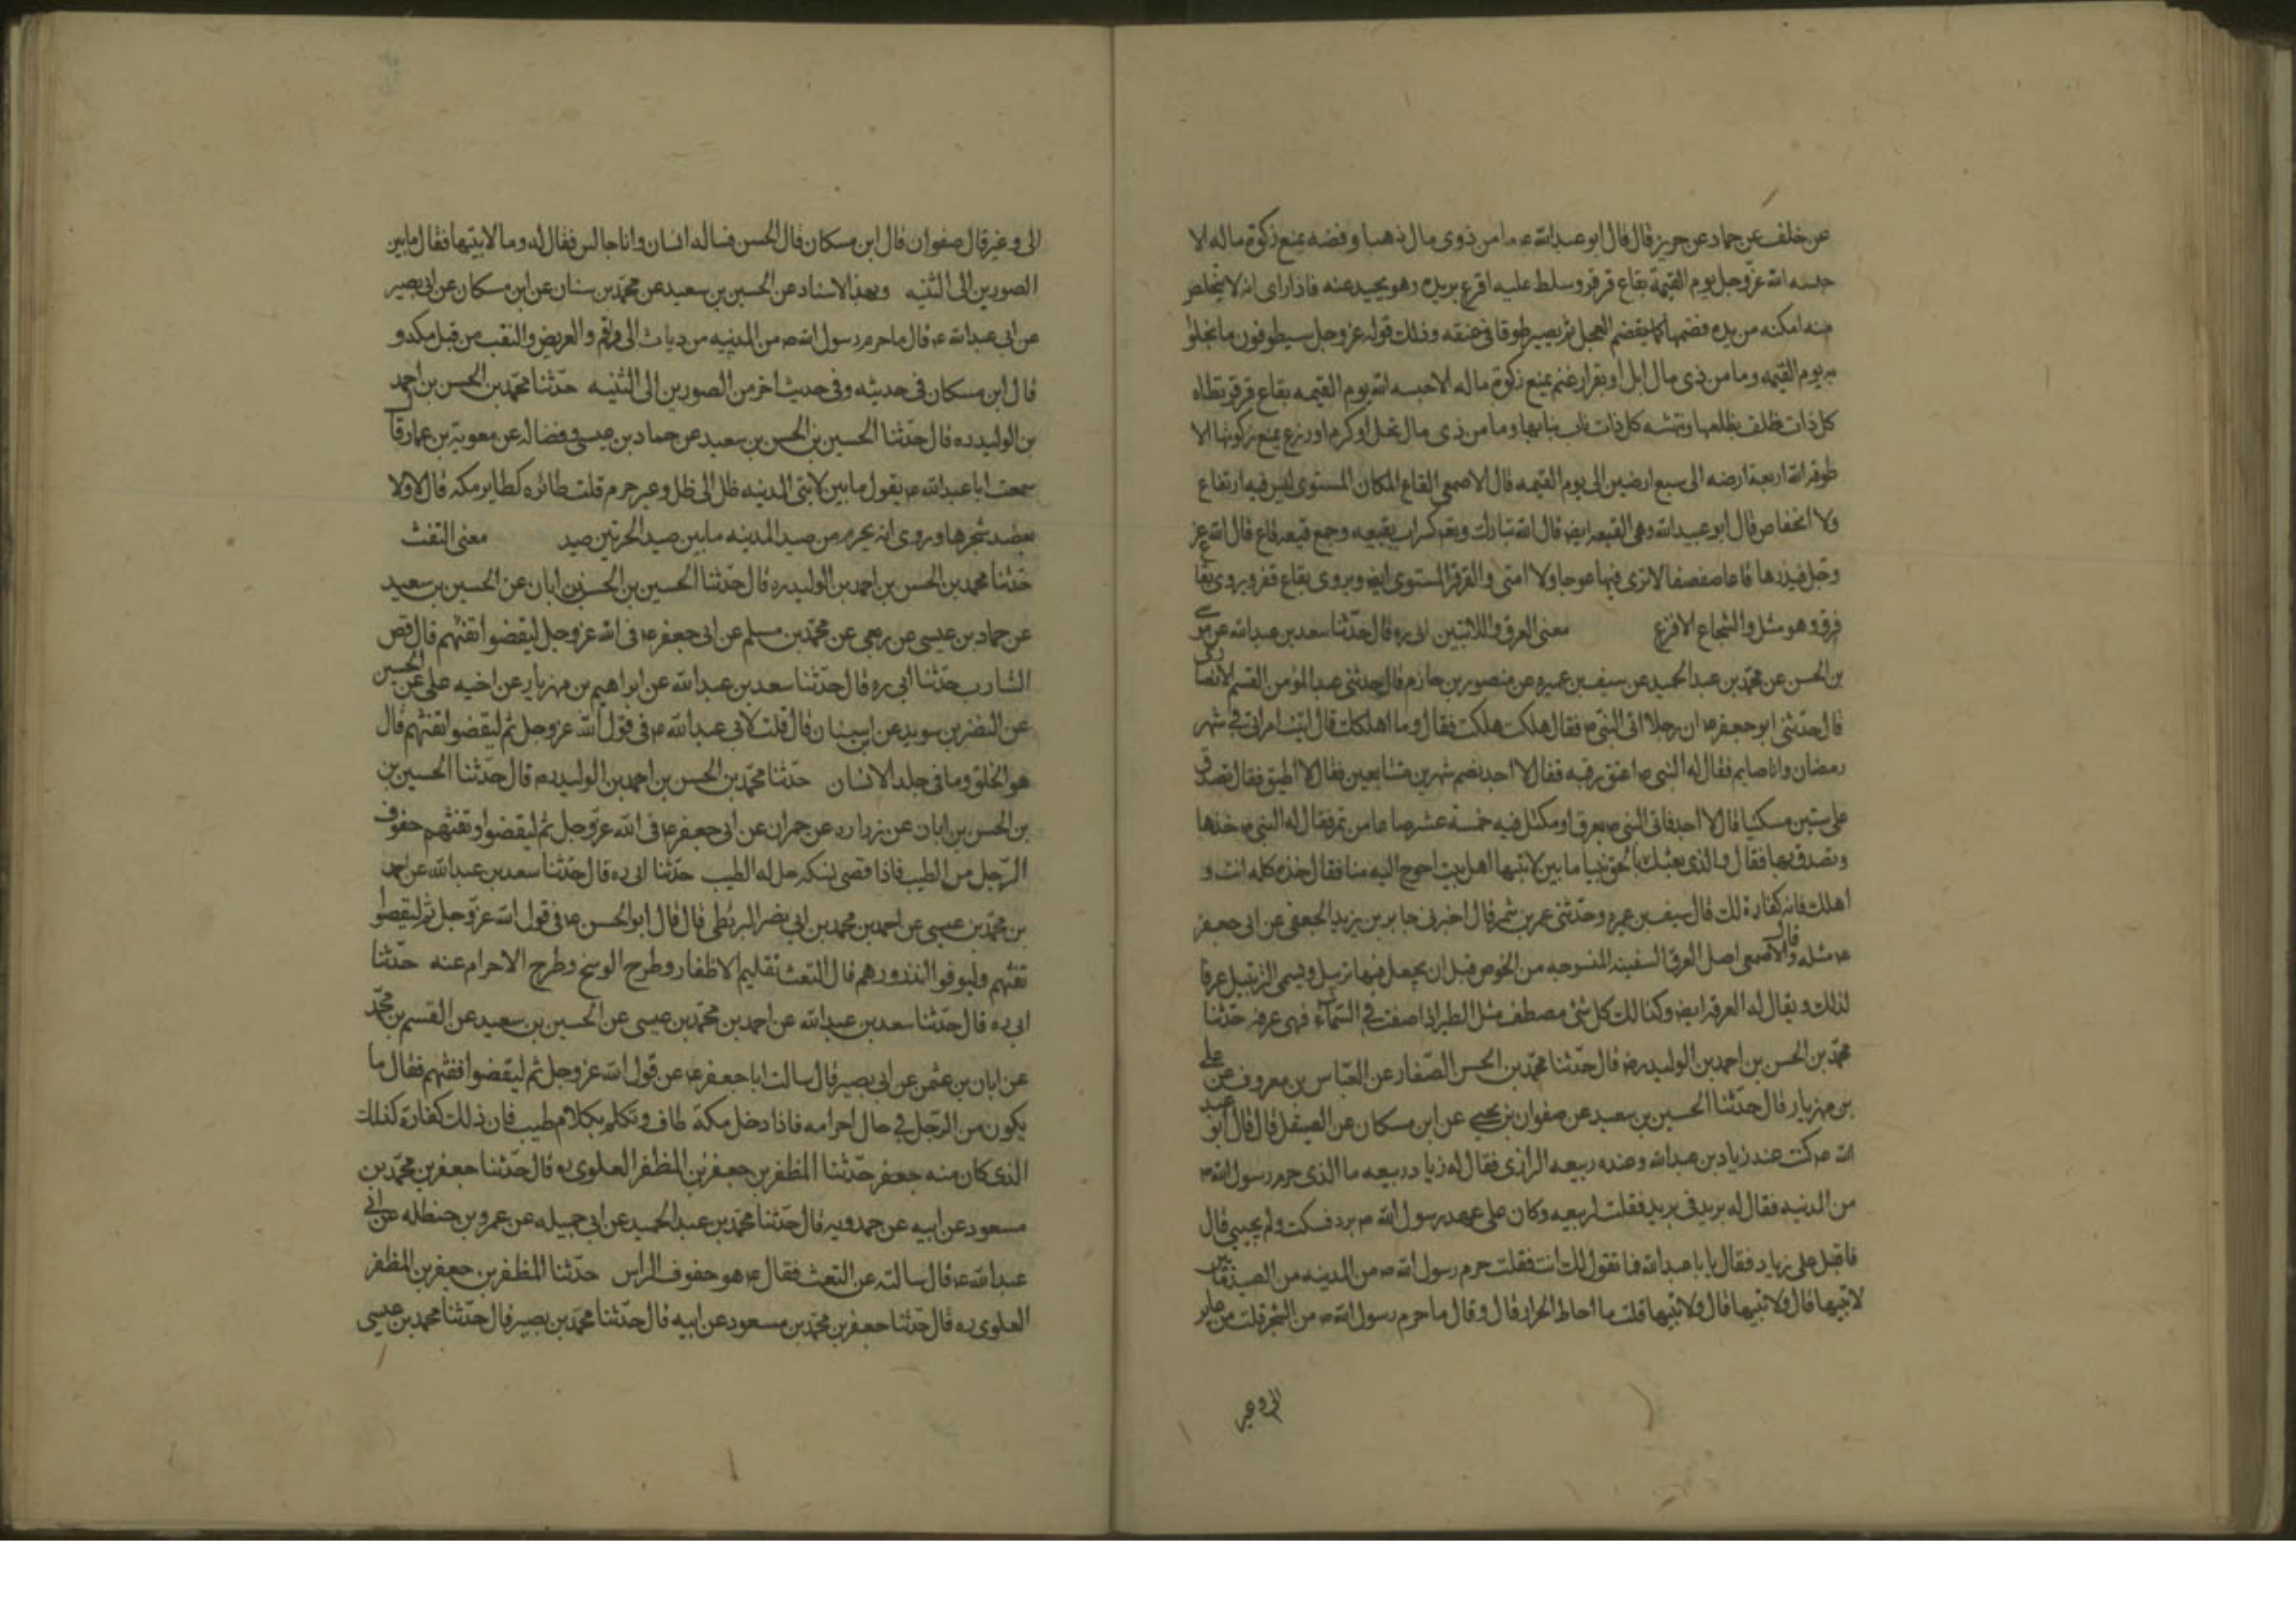 عن خلف عن حماد عن حريز قال قال ابو عبدالله ع ما من ذوى مال ذهبا و فضه يمنع زكوة ماله الا
حبسه الله عزوجل يوم القيمة بقاع قرقر و سلط عليه اقرع يريده وهو يحيد عنه فاذا راى انه لا يتخلص
منه امكنه من يده فقضمها كما يقضم الفجل ثم يصير طوقا فى عنقه وذلك قوله عزوجل سيطوقون ما بخلوا
به يوم القيمه وما من ذى مال ابل او بقر او غنم يمنع زكوة ماله الا حبسه الله يوم القيمه بقاع قرقر يطاه
كل ذات ظلف بظلفها و تنهشه كل ذات ناب بنابها وما من ذى مال نخل او كرم او زرع يمنع زكوتها الا
طوقه الله اربعة ارضه الى سبع ارضين الى يوم القيمه قال الاصمعى القاع المكان المستوى ليس فيه ارتفاع
ولا انخفاص قال ابو عبيدالله وهى القيعه ايضا قال الله تبارك و تعم كسراب بقيعه و جمع قيعه قاع قال الله عز
وجل فيذرها قاعا صفصفا لا ترى فيها عوجا ولا امتى والقرقر المستوى ايضا ويروى بقاع قفر ويروى بقاع
قرق وهو مثل والشجاع الاقرع معنى العرق واللابتين ابى ره قال حدثنا سعد بن عبدالله عن موسى
بن الحسن عن محمد بن عبدالحميد عن سيف بن عميره عن منصور بن حازم قال حدثنى عبدالمومن القسم الانصارى
قال حدثنى ابو جعفر ع ان رجلا اتى النبى ص فقال هلكت هلكت فقال وما اهلكك قال اتيت امراتى فى شهر
رمضان وانا صايم فقال له النبى ص اعتق رقبه فقال لا اجد فصم شهرين متتابعين فقال لا اطيق فقال تصدق
على ستين مسكينا قال لا اجد فاتى النبى ص بعرق او مكتل فيه خمسة عشر صاعا من تمر فقال له النبى ص خذها
وتصدق بها فقال والذى بعثك بالحق نبيا ما بين لابتيها اهل بيت احوج اليه منا فقال خذه كله انت و
اهلك فانه كفارة لك قال سيف بن عميره وحدثنى عمر بن شمر قال اخبرنى جابر بن يزيد الجعفى عن ابى جعفر
ع مثله قال والاصمعى اصل العرق السفيفه المنسوجه من الخوص قبل ان يجعل فيها زبيل ويسمى الزنبيل عرقا
لذلك ويقال له العرقه ايضا وكذالك كل شئ مصطف مثل الطير اذا صفت فى السماء فهى عرقه حدثنا
محمد بن الحسن بن احمد بن الوليد رض قال حدثنا محمد بن الحسن الصفار عن العباس بن معروف عن على
بن مهزيار قال حدثنا الحسين بن سعيد عن صفوان بن يحيى عن ابن مسكان عن الصيقل قال قال ابو عبد
الله ع كنت عند زياد بن عبدالله وعنده ربيعه الرازى فقال له زياد ربيعه ما الذى حرم رسول الله ص
من المدنيه فقال له بريد فى بريد فقلت لربيعه وكان على عهد رسول الله ص برد فسكت ولم يجيبى قال
فاقبل على زياد فقال يابا عبدالله فما تقول لك انت فقلت حرم رسول الله ص من المدينه من الصيد ما بين
لابتيها قال ولا بتيها قال ولابتيها قلت ما احاط الحرار قال وقال ما حرم رسول الله ص من الشجر قلت من عاير
الى وعير
الى وعير قال صفوان قال ابن مسكان قال الحسن فساله انسان وانا جالس فقال له وما لابتيها فقال ما بين
الصورين الى الثنيه وبهذا الاسناد عن الحسين بن سعيد عن محمد بن سنان عن ابن مسكان عن ابى بصير
عن ابى عبدالله ع قال ما حرم رسول الله ص من المدينيه من ديات الى واقم والعريض والنقب من قبل مكه و
قال ابن مسكان فى حديثه وفى حديث اخر من الصورين الى الثنيه حدثنا محمد بن الحسن بن احمد
بن الوليد ره قال حدثنا الحسين بن الحسن بن سعيد عن حماد بن عيسى و فضاله عن معوية بن عمار قال
سمعت ابا عبدالله ع يقول ما بين لابتى المدينه ظل الى ظل وعير حرم قلت طائره كطاير مكه قال لا ولا
يعضد شجرها وروى انه يحرم من صيد المدينه ما بين صيد الحرتين صيد معنى التفث
حدثنا محمد بن الحسن بن احمد بن الوليد ره قال حدثنا الحسين بن الحسن بن ابان عن الحسين بن سعيد
عن حماد بن عيسى عن ربعى عن محمد بن مسلم عن ابى جعفر ع فى الله عزوجل ليقضوا تفثهم قال قص
الشارب حدثنا ابى ره قال حدثنا سعد بن عبدالله عن ابراهيم بن مهزيار عن اخيه على عن الحسين
عن النضر بن سويد عن ابن سنان قال قلت لابى عبدالله ع فى قول الله عزوجل ثم ليقضوا تفثهم قال
هو الخلق وما فى جلد الانسان حدثنا محمد بن الحسن بن احمد بن الوليد ره قال حدثنا الحسين بن
بن الحسن بن ابان عن زراره عن حمران عن ابى جعفر ع فى الله عزوجل ثم ليقضوا و تفثهم حفوف
الرجل من الطيب فاذا قضى نسكه حل له الطيب حدثنا ابى ره قال حدثنا سعد بن عبدالله عن احمد
بن محمد بن عيسى عن احمد بن محمد بن ابى نضر البزنطى قال قال ابو الحسن ع فى قول الله عزوجل ثم ليقضوا
تفثهم وليوفوا النذورهم قال التفث تقليم الاظفار وطرح الوسخ وطرح الاحرام عنه حدثنا
ابى ره قال حدثنا سعد بن عبدالله عن احمد بن محمد بن عيسى عن الحسين بن سعيد عن القسم بن محمد
عن ابان بن عثمن عن ابى بصير قال سالت ابا جعفر ع عن قول الله عزوجل ثم ليقضوا تفثهم فقال ما
يكون من الرجل فى حال احرامه فاذا دخل مكة طاف وتكلم بكلام طيب فان ذلك كفارة كذلك
الذى كان منه جعفر حدثنا المظفر بن جعفر بن المظفر العلوى ره قال حدثنا جعفر بن محمد بن
مسعود عن ابيه عن حمدويه قال حدثنا محمد بن عبدالحميد عن ابى جميله عن عمرو بن حنظله عن ابى
عبدالله ع قال سالته عن التفث فقال ع هو حفوف الراس حدثنا المظفر بن جعفر بن المظفر
العلوى ره قال حدثنا جعفر بن محمد بن مسعود عن ابيه قال حدثنا محمد بن بصير قال حدثنا محمد بن عيسى